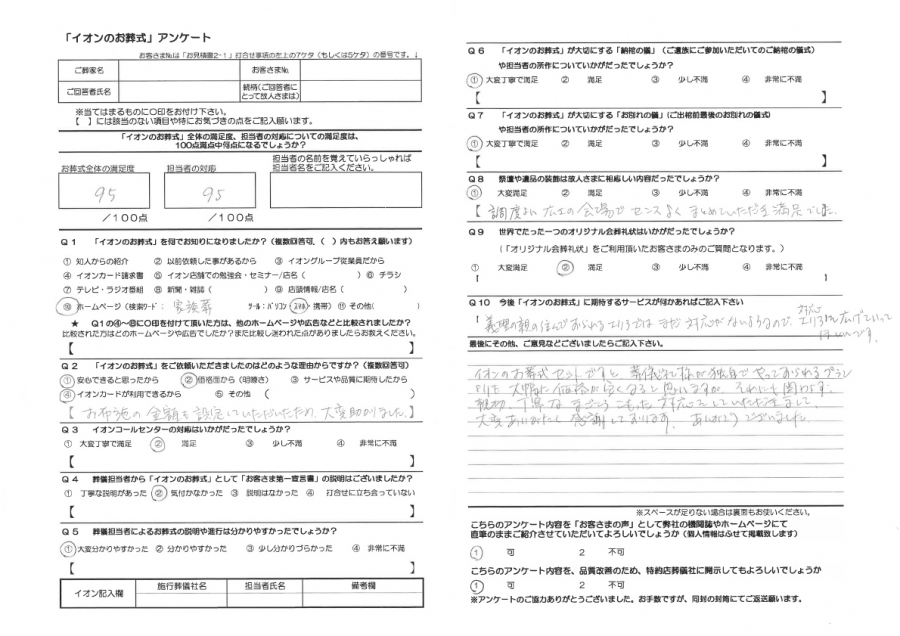 「イオンのお葬式」アンケート
お客さま№は「お見積書2-1」打合せ事項の左上の7ケタ（もしくは5ケタ）の番号です。↓
ご葬家名 お客さま№
ご回答者氏名 続柄(ご回答者に
とって故人さまは)
※当てはまるものに○印をお付け下さい。
【　】には該当のない項目や特にお気づきの点をご記入願います。
「イオンのお葬式」全体の満足度、担当者の対応についての満足度は、
100点満点中何点になるでしょうか？
お葬式全体の満足度 担当者の対応 担当者の名前を覚えていらっしゃれば
担当者名をご記入ください。
95 95
/100点 /100点
Q1 「イオンのお葬式」を何でお知りになりましたか？（複数回答可、（　）内もお答え願います）
① 知人からの紹介 ② 以前依頼した事があるから ③ イオングループ従業員だから
④ イオンカード請求書 ⑤ イオン店舗での勉強会・セミナー/店名（　） ⑥ チラシ
⑦ テレビ・ラジオ番組 ⑧ 新聞・雑誌（　） ⑨ 店頭情報/店名（　）
⑩ ホームページ（検索ワード： 家族葬 ツール：パソコン スマホ 携帯） ⑪ その他（　）
★ Q1の④～⑧○印を付けて頂いた方は、他のホームページや広告などと比較されましたか？
比較された方はどのホームページや広告でしたか？また比較し迷われた点がありましたらお教えください。
【　】
Q2 「イオンのお葬式」をご依頼いただきましたのはどのような理由からですか？（複数回答可）
① 安心できると思ったから ② 価格面から（明瞭さ） ③ サービスや品質に期待したから
④ イオンカードが利用できるから ⑤ その他（　）
【 お布施の金額も設定していただいたため、大変助かりました。】
Q3 イオンコールセンターの対応はいかがだったでしょうか？
① 大変丁寧で満足 ② 満足 ③ 少し不満 ④ 非常に不満
【　】
Q4 葬儀担当者から「イオンのお葬式」として「お客さま第一宣言書」の説明はございましたか？
① 丁寧な説明があった ② 気付かなかった ③ 説明はなかった ④ 打合せに立ち会っていない
【　】
Q5 葬儀担当者によるお葬式の説明や進行は分かりやすかったでしょうか？
① 大変分かりやすかった ② 分かりやすかった ③ 少し分かりづらかった ④ 非常に不満
【　】
イオン記入欄 施行葬儀社名 担当者氏名 備考欄
Q6 「イオンのお葬式」が大切にする「納棺の儀」（ご遺族にご参加いただいてのご納棺の儀式）
や担当者の所作についていかがだったでしょうか？
① 大変丁寧で満足 ② 満足 ③ 少し不満 ④ 非常に不満
【　】
Q7 「イオンのお葬式」が大切にする「お別れの儀」（ご出棺前最後のお別れの儀式）
や担当者の所作についていかがだったでしょうか？
① 大変丁寧で満足 ② 満足 ③ 少し不満 ④ 非常に不満
【　】
Q8 祭壇や遺品の装飾は故人さまに相応しい内容だったでしょうか？
① 大変満足 ② 満足 ③ 少し不満 ④ 非常に不満
【 調度よい広さの会場でセンスよくまとめていただき満足でした。
Q9 世界でたった一つのオリジナル会葬礼状はいかがだったでしょうか？
（「オリジナル会葬礼状」をご利用頂いたお客さまのみのご質問となります。）
① 大変満足 ② 満足 ③ 少し不満 ④ 非常に不満
Q10 今後「イオンのお葬式」に期待するサービスが何かあればご記入下さい
義理の親の住んでおられるエリアではまだ対応がないようなので、対応エリアを広げていって
ほしいです。
最後にその他、ご意見などございましたらご記入下さい。
イオンのお葬式セットですと、葬儀社様が独自でやっておられるプラン
よりも大幅に価格が安くなると思いますが、それにも関わらず、
親切、丁寧なまごころこもった対応をしていただきまして、
大変ありがたく感謝しております。ありがとうございました。
※スペースが足りない場合は裏面もお使いください。
こちらのアンケート内容を「お客さまの声」として弊社の機関誌やホームページにて
直筆のままご紹介させていただいてよろしいでしょうか（個人情報はふせて掲載致します）
1 可 2 不可
こちらのアンケート内容を、品質改善のため、特約店葬儀社に開示してもよろしいでしょうか
1 可 2 不可
※アンケートのご協力ありがとうございました。お手数ですが、同封の封筒にてご返送願います。